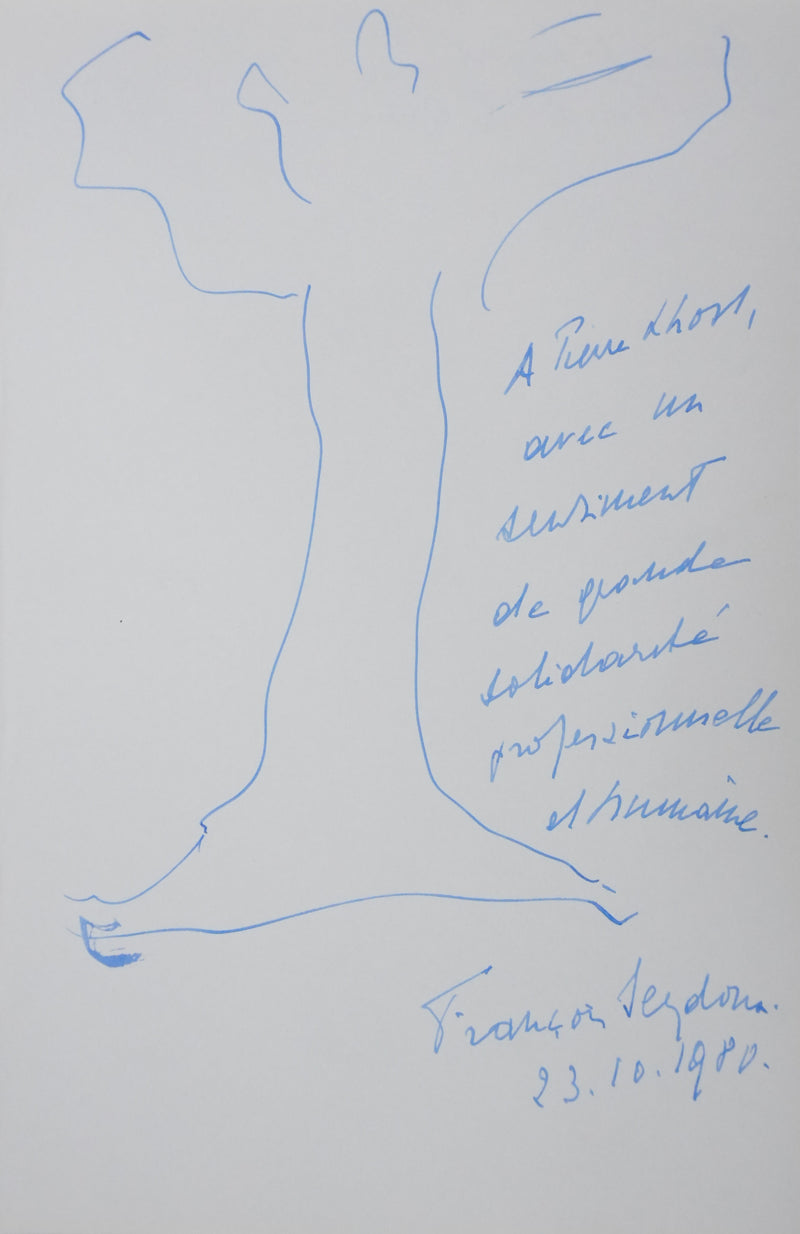 A Pierre Lhost,
avec un
sentiment
de grande
solidarité
professionnelle
et humaine.
François Seydoux.
23.10.1980.